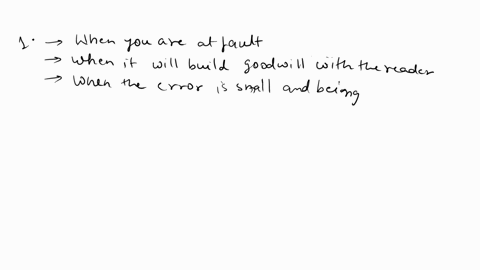 1. → When you are at fault
→ when it will build goodwill with the reader
→ when the error is small and being